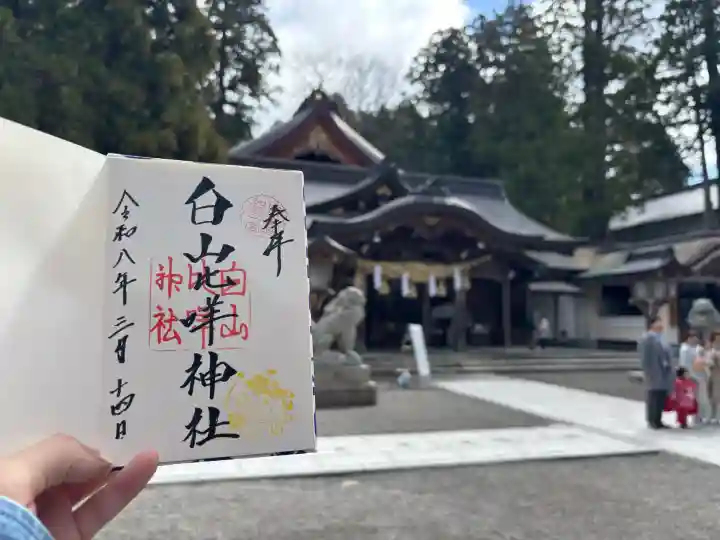 奉拝
白山比咩神社
白山比咩神社
令和八年三月十四日